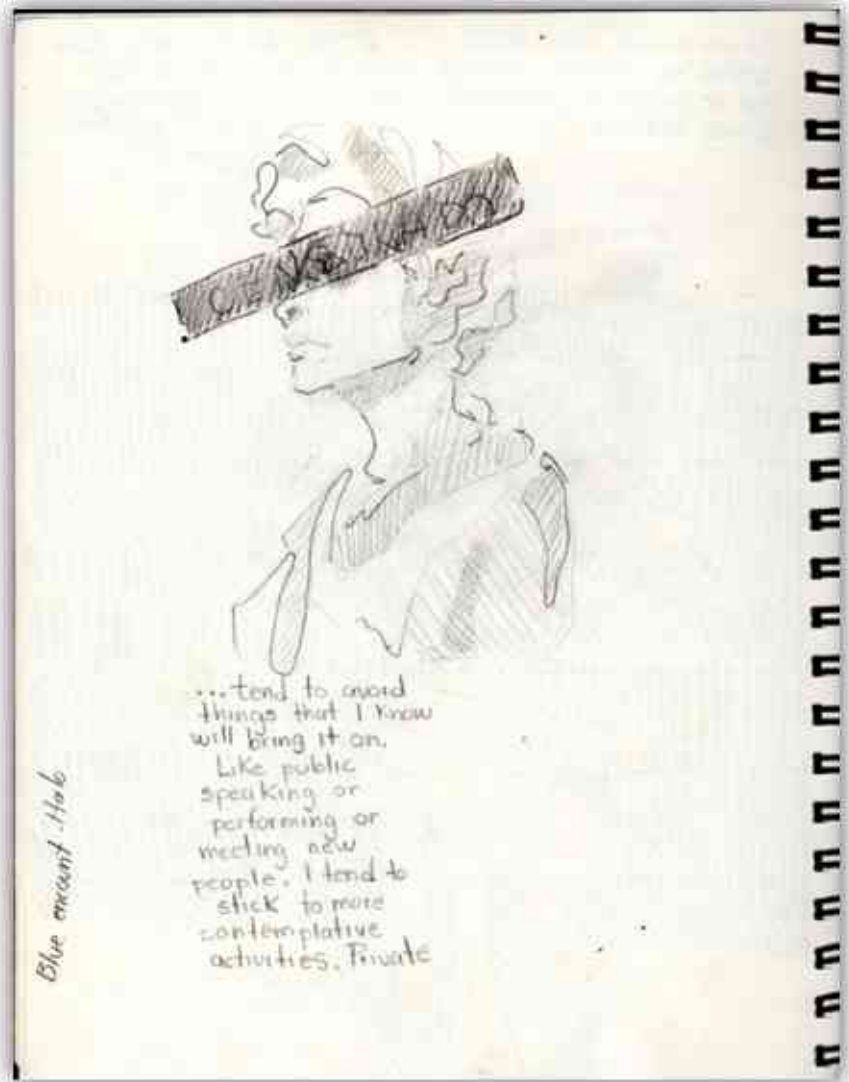 CENSURADO
...tend to avoid
things that I know
will bring it on.
Like public
speaking or
performing or
meeting new
people. I tend to
stick to more
contemplative
activities. Private
Blue